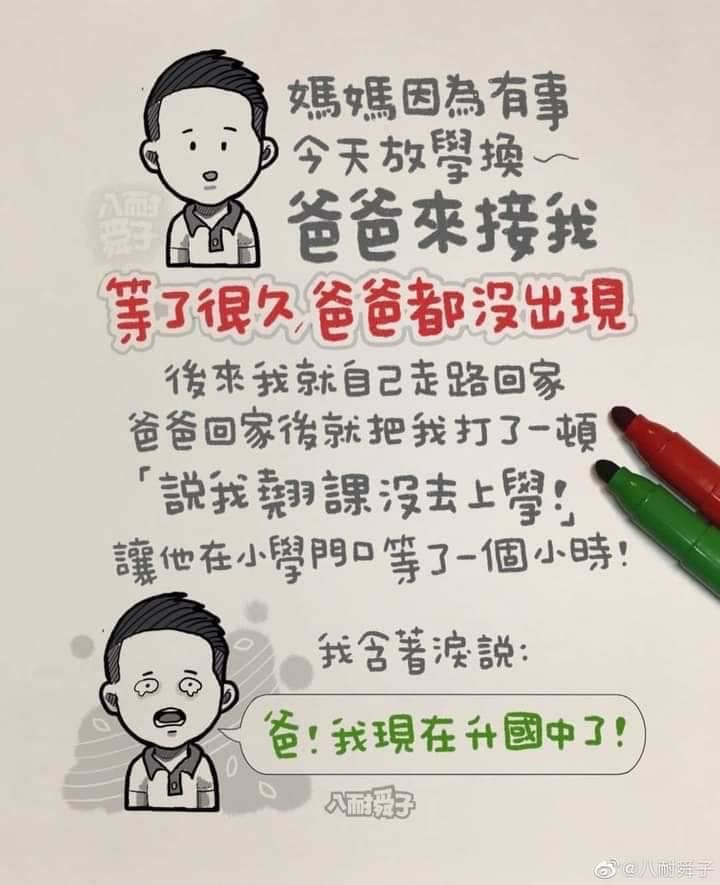 媽媽因為有事
今天放學換～
爸爸來接我
八耐
舜子
等了很久,爸爸都沒出現
後來我就自己走路回家
爸爸回家後就把我打了一頓
「說我翹課沒去上學!」
讓他在小學門口等了一個小時!
我含著淚說:
爸!我現在升國中了!
八耐舜子
@八耐舜子